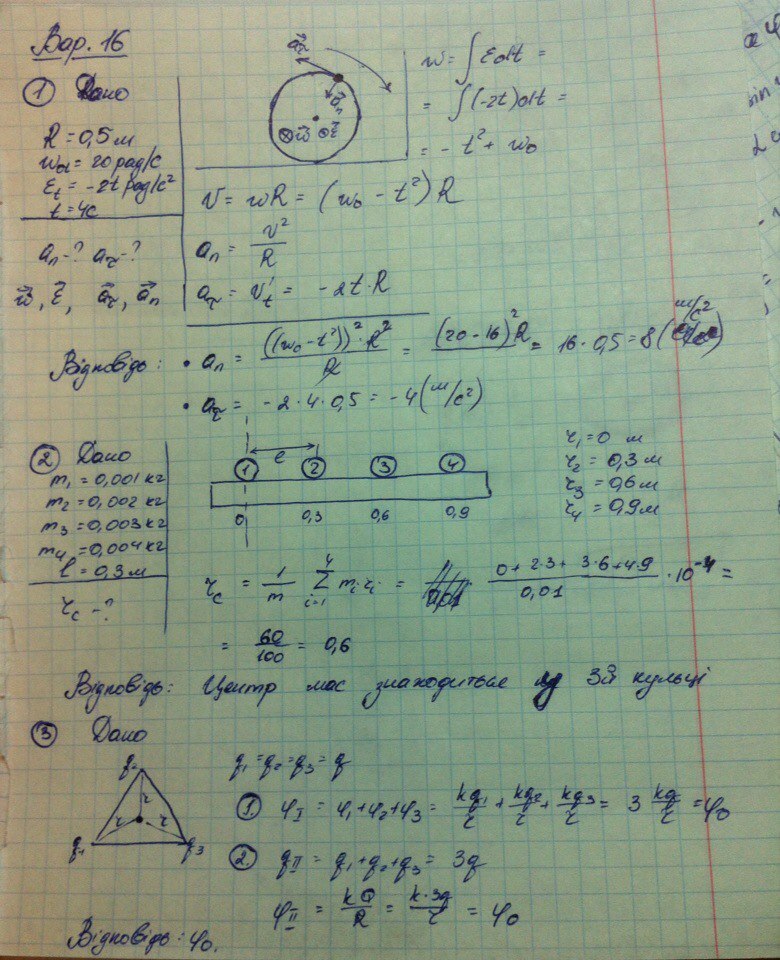 Вар. 16
① Дано
R = 0,5 м
ω₀ = 20 рад/с
ε_t = -2t рад/с²
t = 4с
aₙ - ? a_τ - ?
ω⃗, ε⃗, a⃗_τ, a⃗ₙ
a⃗_τ
a⃗ₙ
⊗ω⃗ ⊙ε⃗
ω = ∫εdt =
= ∫(-2t)dt =
= - t² + ω₀
v = ωR = (ω₀ - t²)R
aₙ = v²/R
a_τ = v'_t = -2t·R
Відповідь: • aₙ = ((ω₀-t²))²·R²/R = (20-16)²R = 16·0,5 = 8 (м/с²)
• a_τ = -2·4·0,5 = -4 (м/с²)
② Дано
m₁ = 0,001 кг
m₂ = 0,002 кг
m₃ = 0,003 кг
m₄ = 0,004 кг
l = 0,3 м
r_c - ?
l
① ② ③ ④
0 0,3 0,6 0,9
r₁ = 0 м
r₂ = 0,3 м
r₃ = 0,6 м
r₄ = 0,9 м
r_c = 1/m Σ⁴ᵢ₌₁ mᵢrᵢ = (0 + 2·3 + 3·6 + 4·9)/0,01 · 10⁻⁴ =
= 60/100 = 0,6
Відповідь: Центр мас знаходиться у 3й кульці
③ Дано
q₂
r
r r
q₁ q₃
q₁ = q₂ = q₃ = q
① φ_I = φ₁ + φ₂ + φ₃ = kq₁/r + kq₂/r + kq₃/r = 3 kq/r = φ₀
② q_II = q₁ + q₂ + q₃ = 3q
φ_II = kQ/R = k·3q/r = φ₀
Відповідь: φ₀.